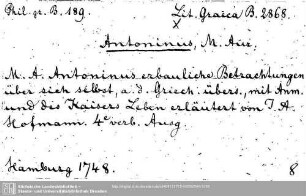 Phil. gr. B. 189.
Lit. Graeca B. 2868.
Antoninus, M. Aur.
M. A. Antoninus erbauliche Betrachtungen
über sich selbst, a. d. Griech. übers., mit Anm.
und des Kaisers Leben erläutert von J. A.
Hofmann. 4e verb. Ausg.
Hamburg 1748
8